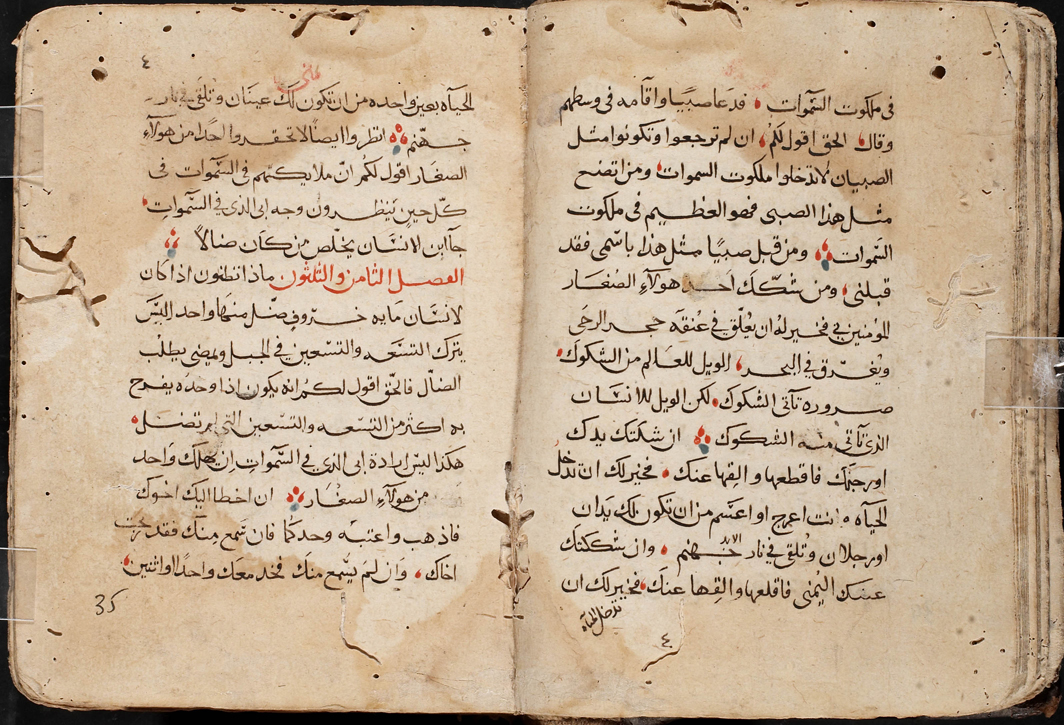 فى ملكوت السموات فدعا صبيًا واقامه فى وسطهم
وقال الحق اقول لكم ان لم ترجعوا وتكونوا مثل
الصبيان لا تدخلوا ملكوت السموات ومن اتضع
مثل هذا الصبى فهو العظيم فى ملكوت
السموات ومن قبل صبيًا مثل هذا باسمى فقد
قبلنى ومن شكك احد هولآء الصغار
المومنين بى فخير له ان يعلق فى عنقه حجر الرحى
ويغرق فى البحر الويل للعالم من الشكوك
ضروره تآتى الشكوك لكن الويل للانسان
الذى تآتى منه الشكوك ان شككتك يدك
او رجلك فاقطعها والقها عنك فخير لك ان تدخل
الحياه وانت اعرج او اعسم من ان تكون لك يدان
او رجلان وتلقى فى نار الابد جهنم وان شككتك
عينك اليمنى فاقلعها والقها عنك فخير لك ان
تدخل الحياه
٤
٤
الحياه بعين واحده من ان تكون لك عينان وتلقى فى نار
جهنم انظروا ايضًا لا تحقروا احدًا من هولآء
الصغار اقول لكم ان ملايكتهم فى السموات فى
كل حين ينظرون وجه ابى الذى فى السموات
جآ ابن الانسان يخلص من كان ضالاً
الفصل الثامن والثلثون ماذا تظنون اذا كان
لانسان مايه خروف فضل منها واحد اليس
يترك التسعه والتسعين فى الجبل ويمضى يطلب
الضال فالحق اقول لكم انه يكون اذا وجده يفرح
به اكثر من التسعه والتسعين التى لم تضل
هكذا ليس اراده ابى الذى فى السموات ان يهلك واحد
من هولآء الصغار ان اخطا اليك اخوك
فاذهب واعتبه وحدكما فان سمع منك فقد ربحت
اخاك وان لم يسمع منك فخد معك واحدًا او اثنين
35